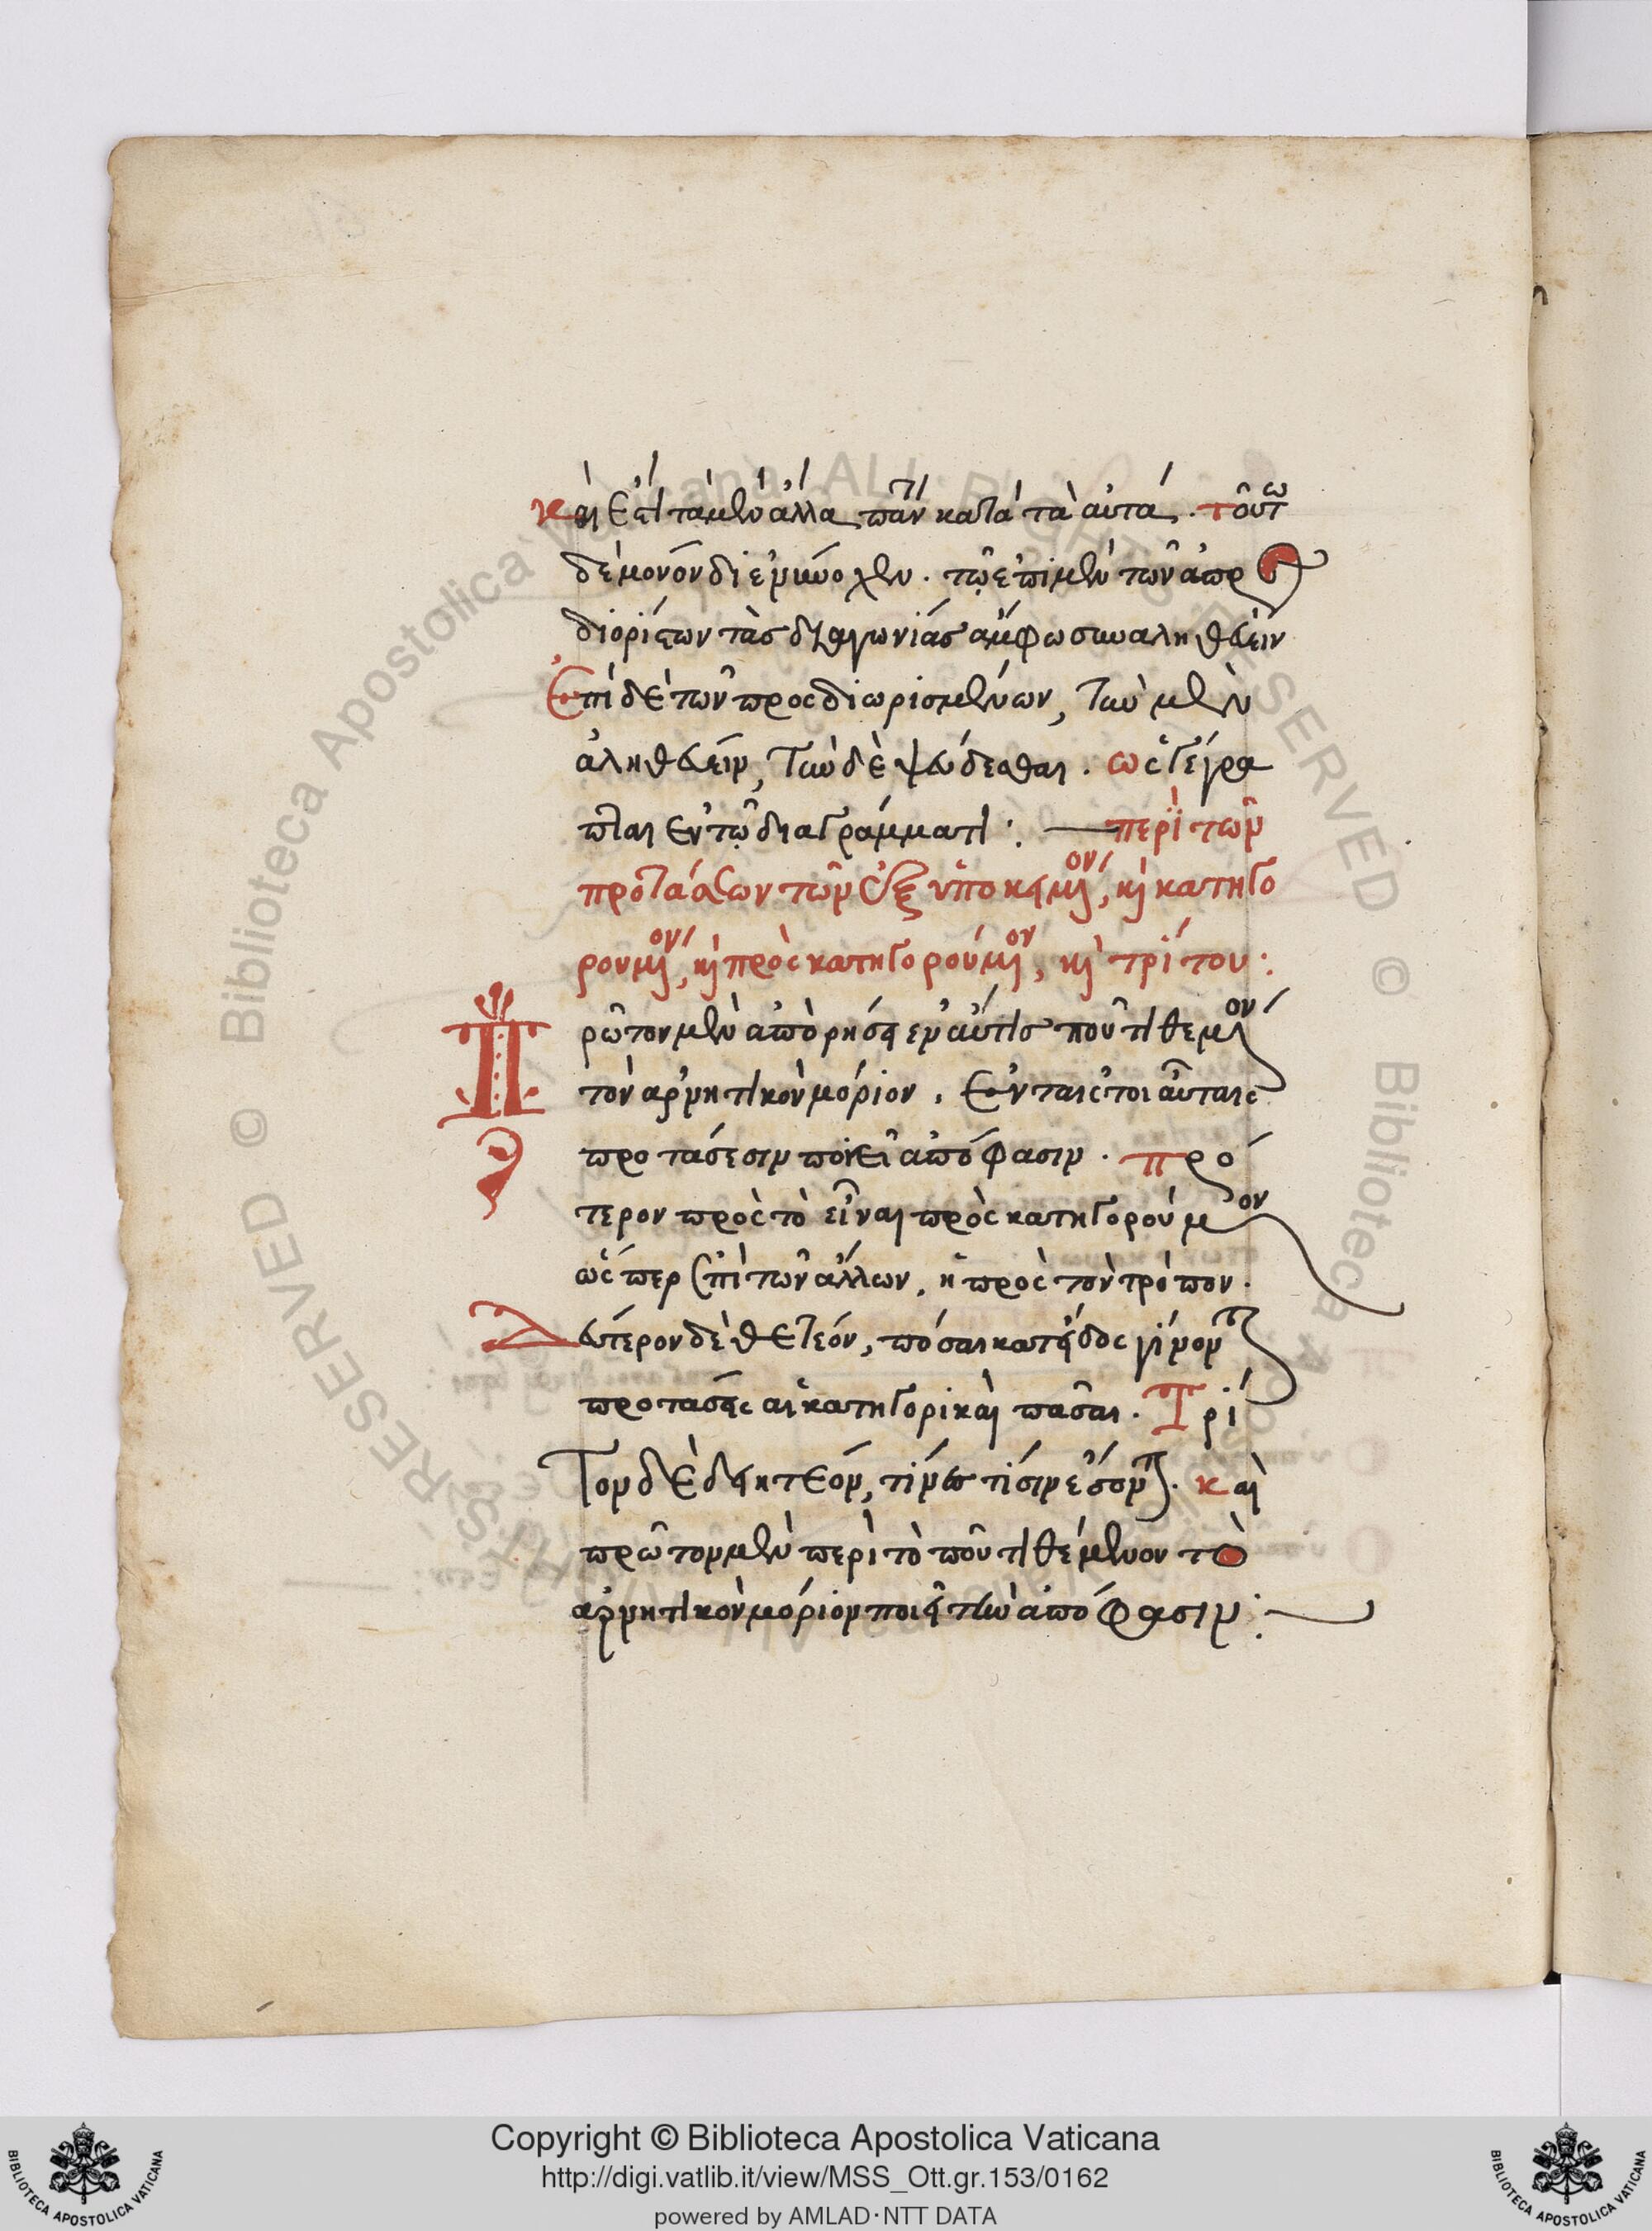 καὶ ἔστι τὰ μὲν ἄλλα πάντα κατὰ τὰ αὐτά. τούτω
δὲ μόνον διενήνοχεν. τῷ ἐπὶ μὲν τῶν ἀπροσ
διορίστων τὰς διαγωνίας ἄμφω συναληθεύειν
Ἐπὶ δὲ τῶν προσδιωρισμένων, τὴν μὲν
ἀληθεύειν, τὴν δὲ ψεύδεσθαι. ὡς γέγρα
πται ἐν τῷ διαγράμματι: — περὶ τῶν
προτάσεων τῶν ἐξ ὑποκειμένου, καὶ κατηγο
ρουμένου, καὶ προσκατηγορουμένου, καὶ τρίτου:
Πρῶτον μὲν ἀπορήσειεν ἄν τις ποῦ τιθέμενον
τὸν ἀρνητικὸν μόριον. ἐν ταῖς τοιαύταις
προτάσεσιν ποιεῖ ἀπόφασιν. πρό
τερον πρὸς τὸ εἶναι προσκατηγορούμενον
ὥσπερ ἐπὶ τῶν ἄλλων. ἢ πρὸς τὸν τρόπον.
Δεύτερον δὲ θετέον, πόσαι κατ' εἶδος γίνονται
προτάσεις αἱ κατηγορικαὶ πᾶσαι. Τρί
τον δὲ δεικτέον, τίνες τίσιν ἕπονται. καὶ
πρῶτον μὲν περὶ τὸ ποῦ τιθέμενον τὸ
ἀρνητικὸν μόριον ποιεῖ τὴν ἀπόφασιν:—
Copyright © Biblioteca Apostolica Vaticana
http://digi.vatlib.it/view/MSS_Ott.gr.153/0162
powered by AMLAD·NTT DATA